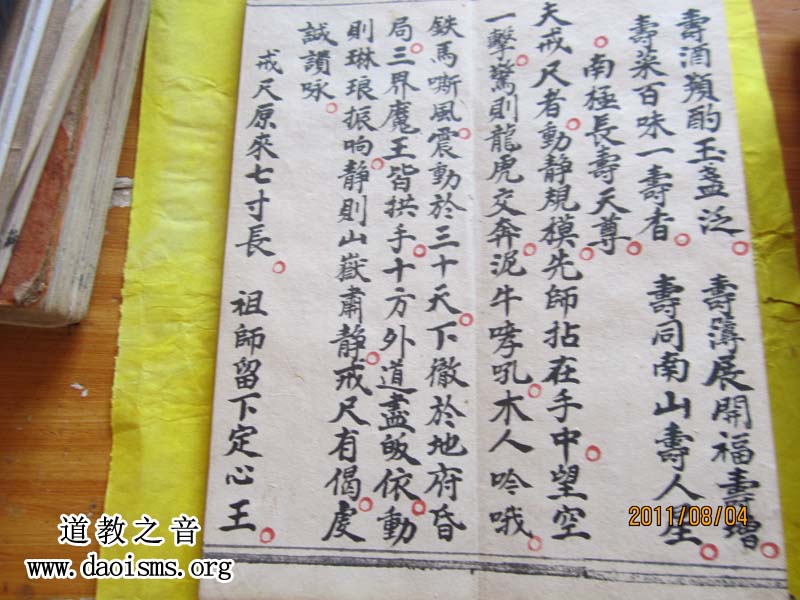 壽酒頻酌玉盞泛。 壽薄展開福壽增。
壽菜百味一壽香。 壽同南山壽人生。
南極長壽天尊。
夫戒尺者動静規模先師拈在手中。望空
一擊。驚則龍虎交奔。泥牛哮吼。木人吟哦。
鉄馬嘶風震動於三十天。下徹於地府昏
局。三界魔王皆拱手。十方外道盡皈依。動
則琳琅振响。静則山嶽肅静。戒尺有偈。虔
誠讃咏。
戒尺原來七寸長。 祖師留下定心王。
2011/08/04
道教之音
www.daoisms.org